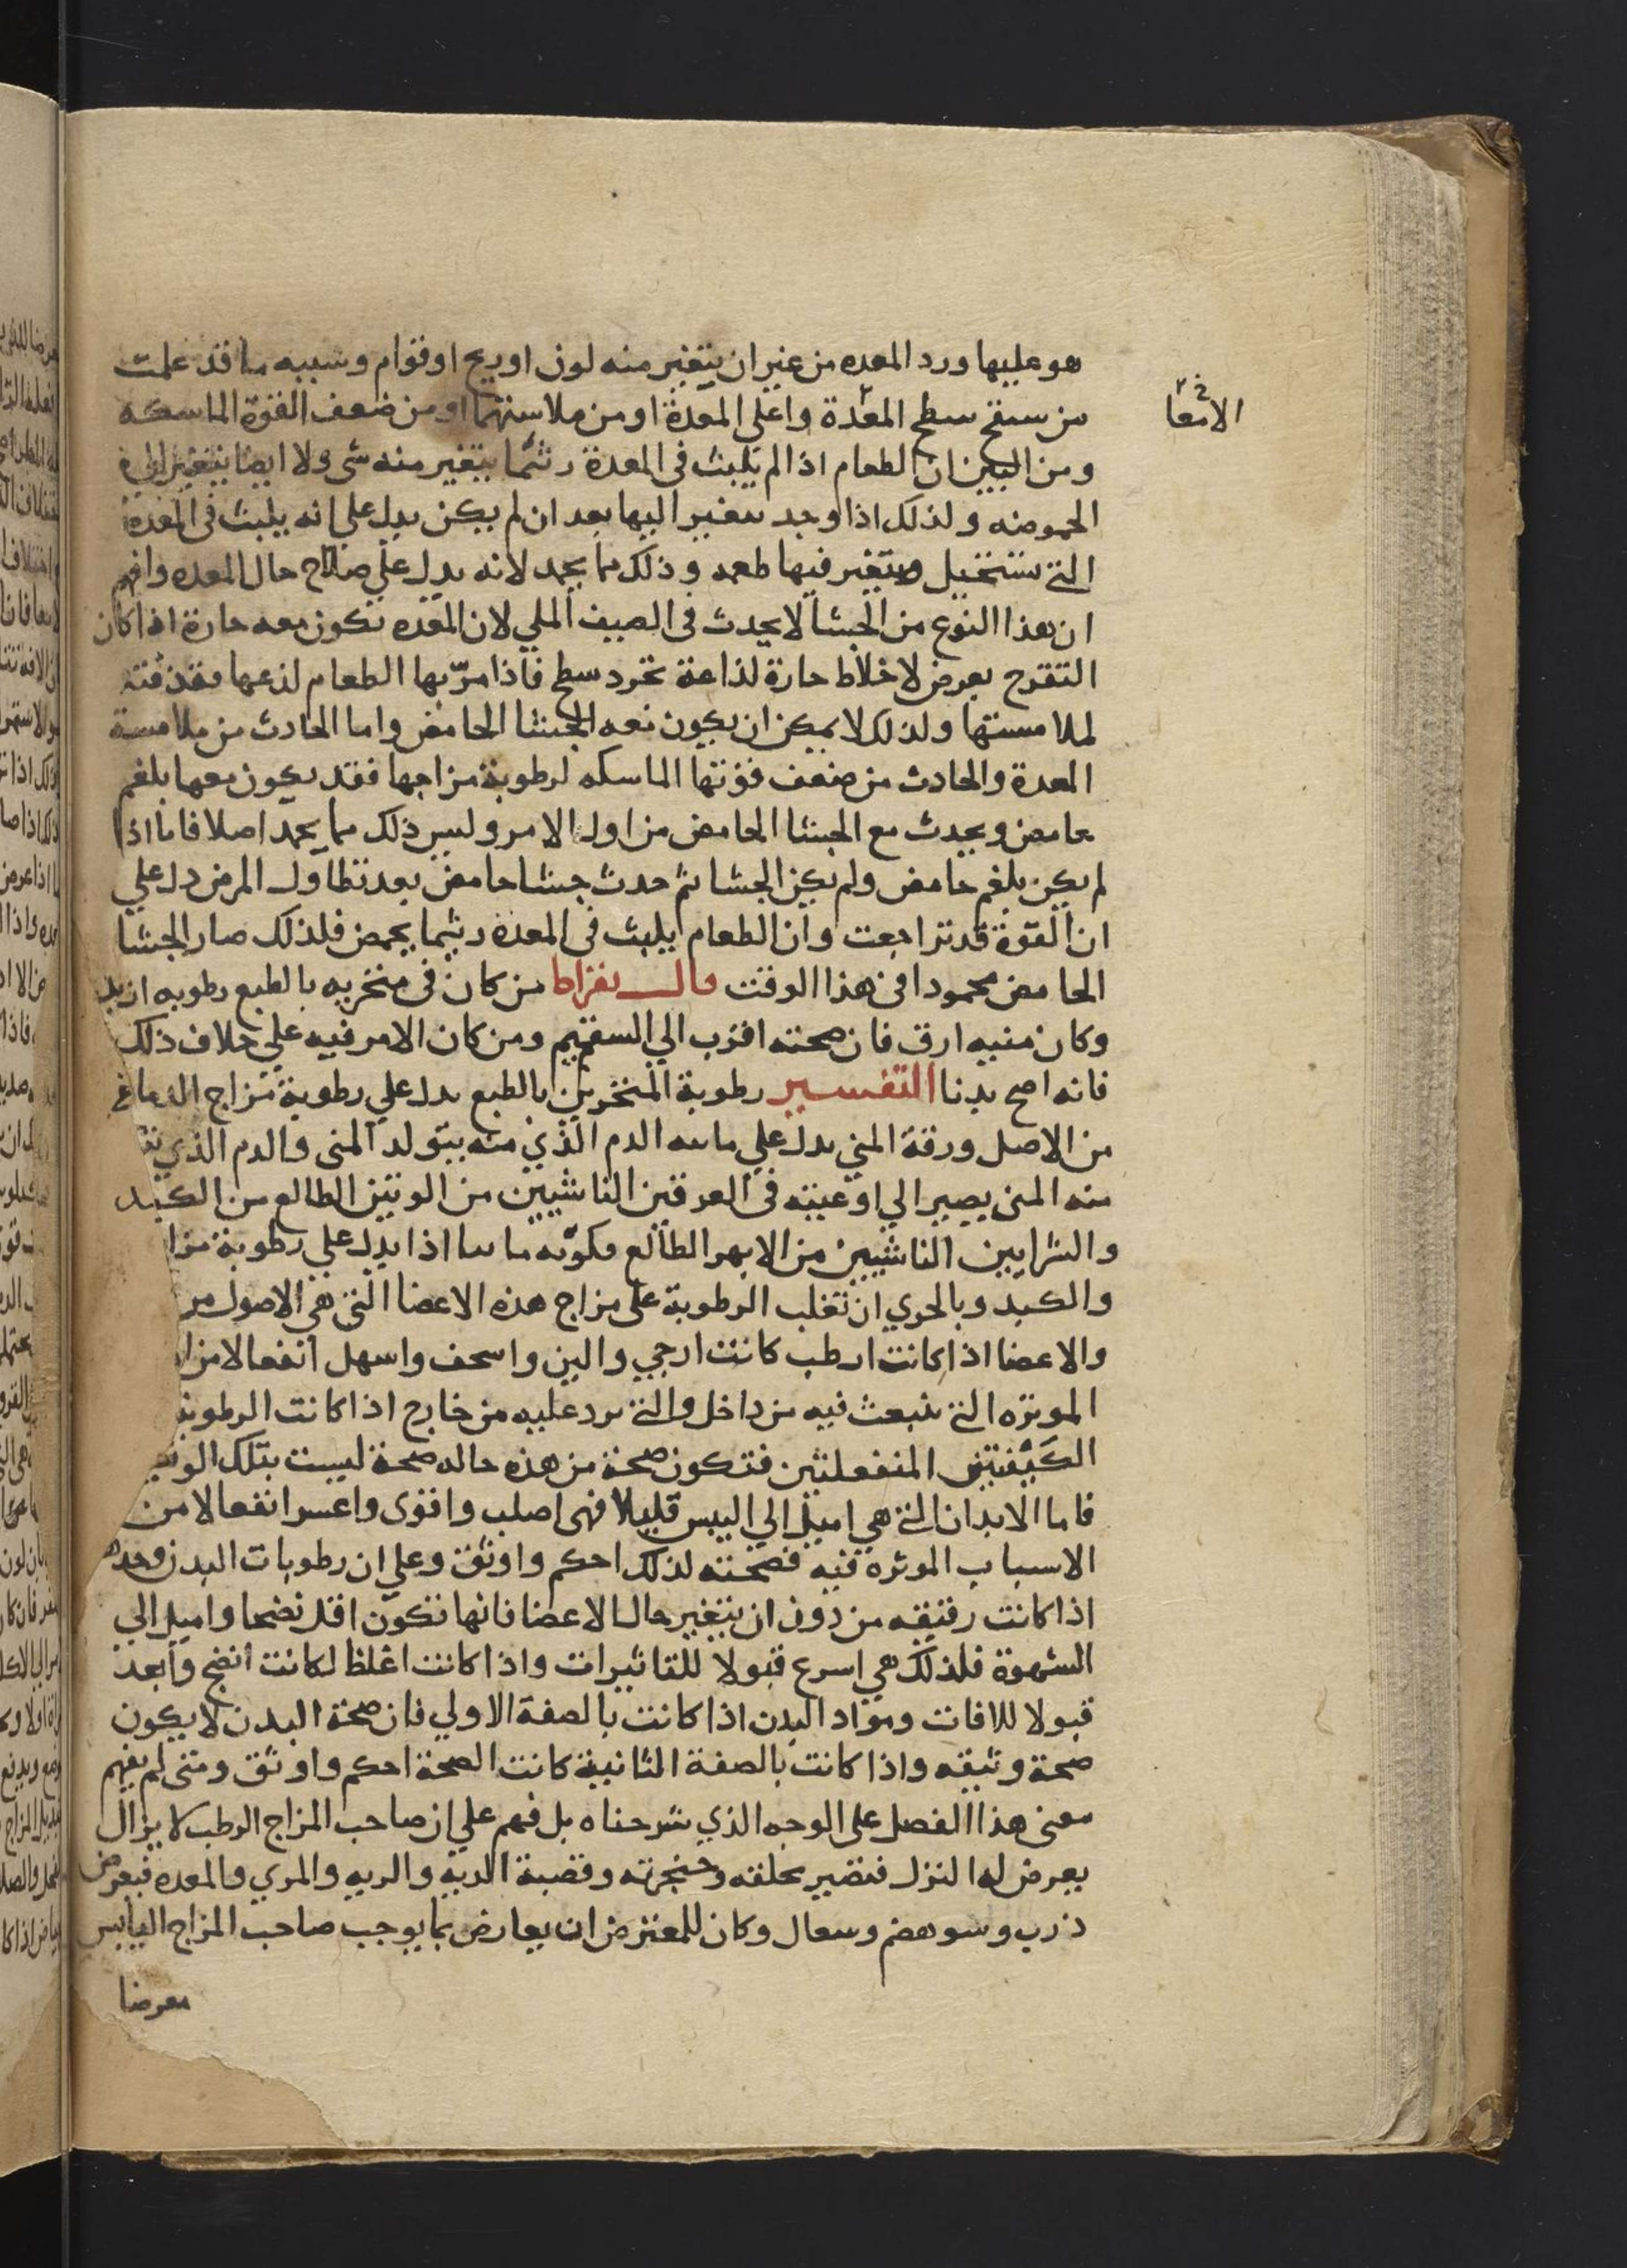 هو عليها ورد المعده من غير ان يتغير منه لون او ريح او قوام وسببه ما قد علمت
من سقح سطح المعدة واعلى المعدة او من ملاستهما او من ضعف القوة الماسكه
الامعا
ومن البين ان الطعام اذا لم يلبث في المعدة رثيما يتغير منه شى ولا ايضا يتغير الى
الحموضه ولذلك اذا وجد يتغير اليها بعد ان لم يكن يدل على انه يلبث في المعدة
التي تستحيل ويتغير فيها طعمه وذلك مما يحمد لانه يدل على صلاح حال المعده وافهم
ان هذا النوع من الجشا لا يحدث في الصيف الملي لان المعده تكون معه حارة اذا كان
التقرح يعرض لاخلاط حارة لذاعة تجرد سطح فاذا مر بها الطعام لذعها فقذفته
لملامستها ولذلك لا يمكن ان يكون معه الجشا الحامض واما الحادث من ملامسة
المعدة والحادث من ضعف قوتها الماسكه لرطوبة مزاجها فقد يكون معها بلغم
حامض ويحدث مع الجشا الحامض من اول الامر وليس ذلك مما يحمد اصلا فاما اذا
لم يكن بلغم حامض ولم يكن الجشا ثم حدث جشا حامض بعد تطاول المرض دل على
ان القوة قد تراجعت وان الطعام يلبث في المعدة رثيما يحمض فلذلك صار الجشا
الحامض محمودا في هذا الوقت قال بقراط من كان في منخريه بالطبع رطوبه ازيد
وكان منيه ارق فان صحته اقرب الي السقم ومن كان الامر فيه علي خلاف ذلك
فانه اصح بدنا التفسير رطوبة المنخرين بالطبع يدل علي رطوبة مزاج الدماغ
من الاصل ورقة المني يدل علي مائيه الدم الذي منه يتولد المنى والدم الذي
منه المنى يصير الي اوعيته في العرقين الناشيين من الوتين الطالع من الكبد
والشرايين الناشيين من الابهر الطالع فكونه مائيا اذا يدل علي رطوبة
والكبد وبالحري ان تغلب الرطوبة على مزاج هذه الاعضا التي هي الاصول
والاعضا اذا كانت ارطب كانت ارخي والين واسخف واسهل انفعالا من
الموثره التي تنبعث فيه من داخل والتي ترد عليه من خارج اذا كانت الرطوبة
الكيفيتين المنفعلتين فتكون صحة من هذه حاله صحة ليست بتلك
فاما الابدان التي هي اميل الي اليبس قليلا فهى اصلب واقوى واعسر انفعالا من
الاسباب الموثره فيه فصحته لذلك احكم واوثق وعلي ان رطوبات البدن وحدها
اذا كانت رقيقه من دون ان يتغير حال الاعضا فانها تكون اقل نضجا واميل الي
الشهوة فلذلك هي اسرع قبولا للتاثيرات واذا كانت اغلظ لكانت انضج وابعد
قبولا للافات ومواد البدن اذا كانت بالصفة الاولي فان صحة البدن لا يكون
صحة وثيقه واذا كانت بالصفة الثانية كانت الصحة احكم واوثق ومتى لم يفهم
معنى هذا الفصل على الوجه الذي شرحناه بل فهم علي ان صاحب المزاج الرطب لا يزال
يعرض له النزل فتضير بحلقه وحنجرته وقصبة الريه والريه والمري والمعده فيعرض
ذرب وسو هضم وسعال وكان للمعترض ان يعارض بما يوجب صاحب المزاج اليابس
معرضا